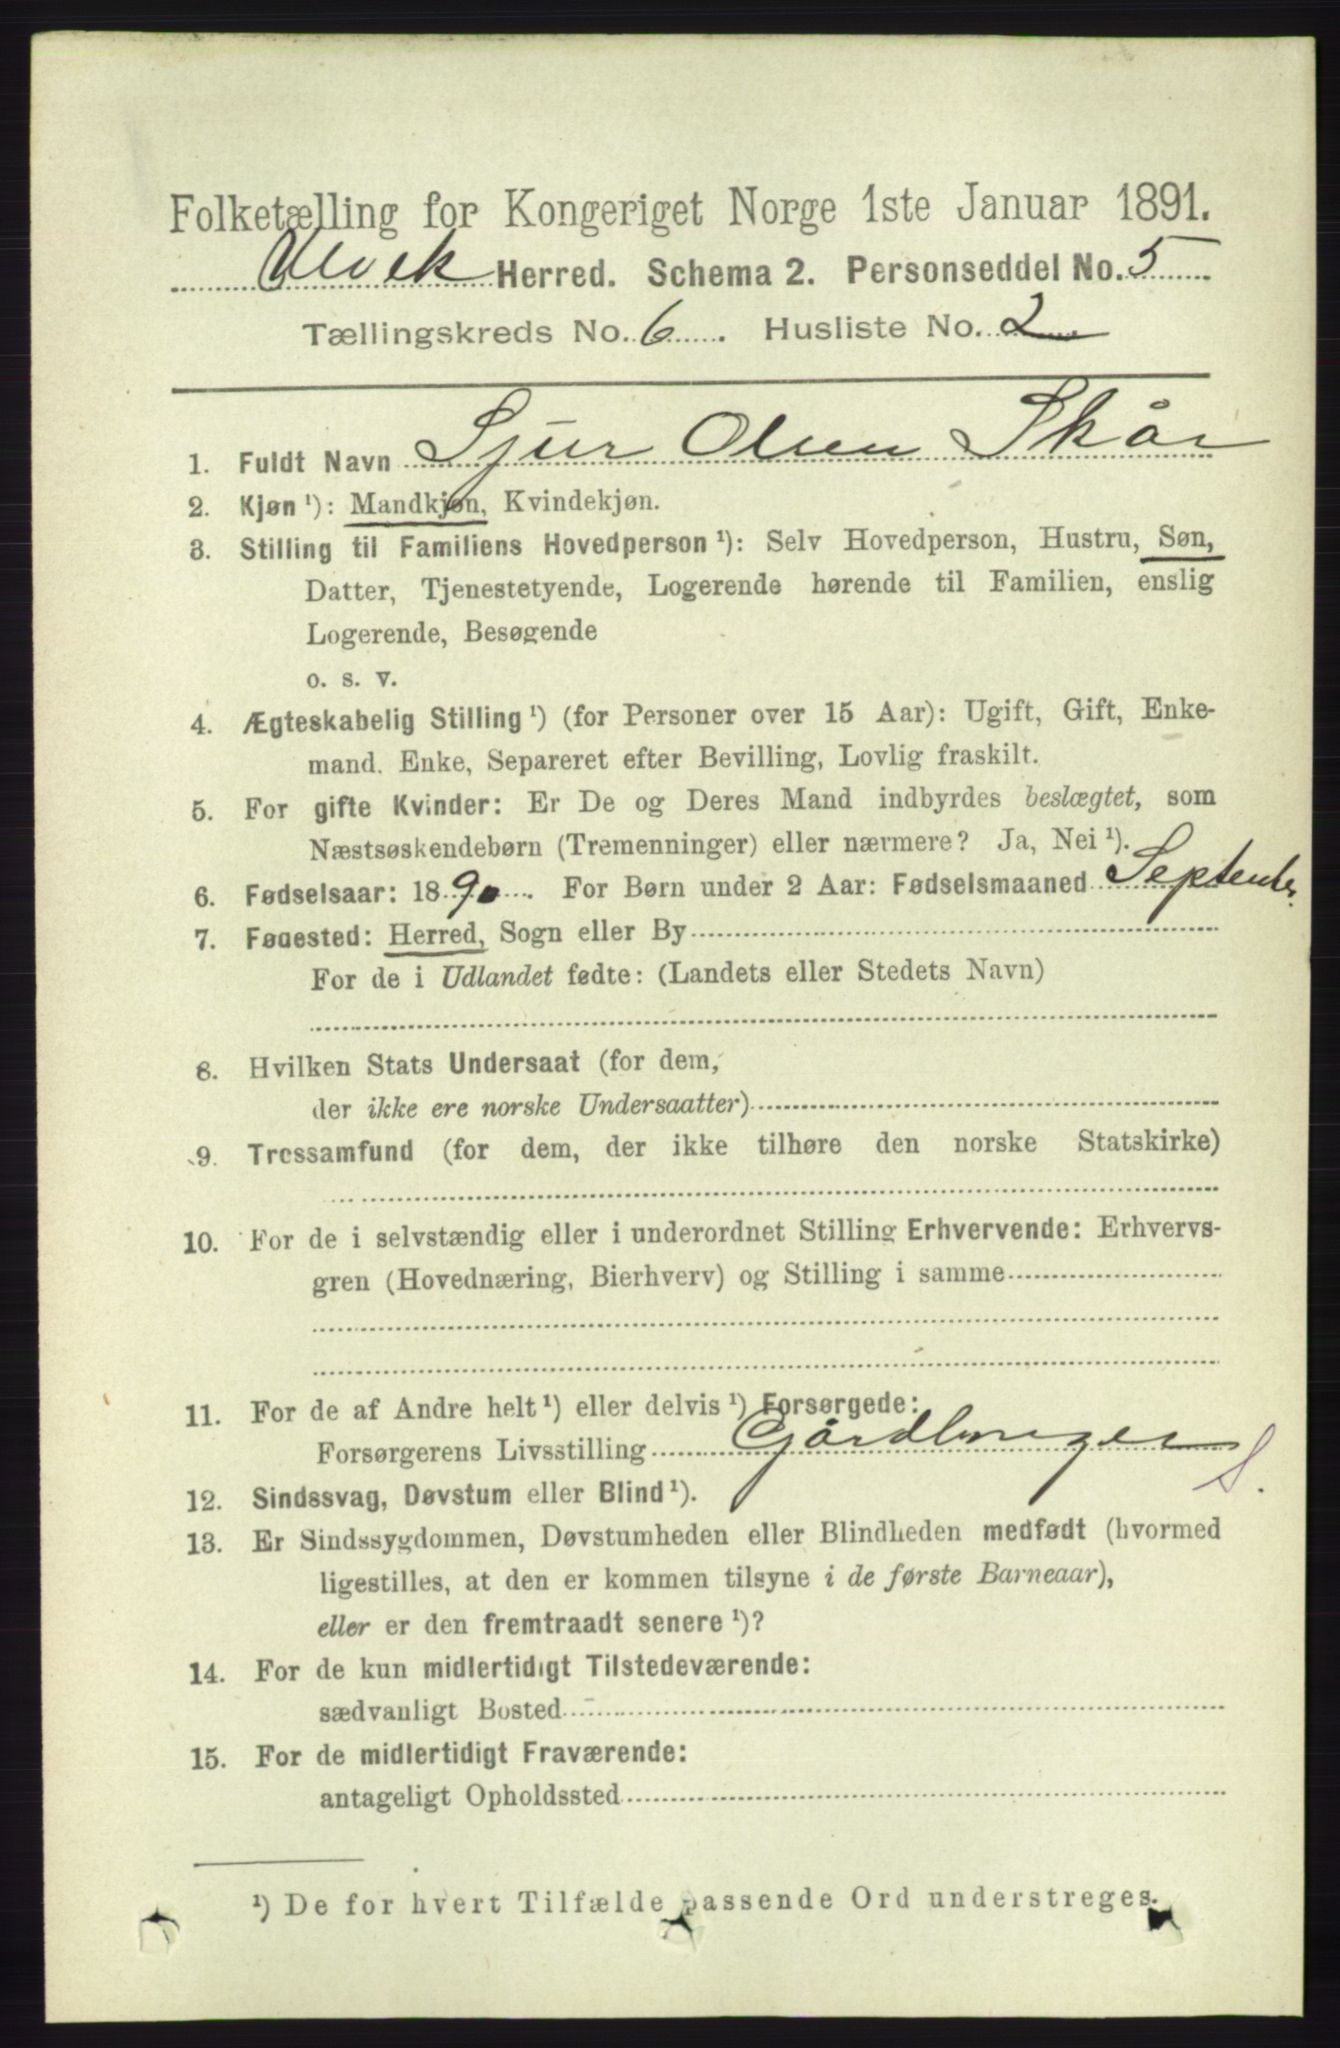 Folketælling for Kongeriget Norge 1ste Januar 1891.
Ulvik Herred. Schema 2. Personseddel No. 5
Tællingskreds No. 6. Husliste No. 2.
1. Fuldt Navn Sjur Olsen Skår
2. Kjøn ¹): Mandkjøn, Kvindekjøn.
3. Stilling til Familiens Hovedperson ¹): Selv Hovedperson, Hustru, Søn,
Datter, Tjenestetyende, Logerende hørende til Familien, enslig
Logerende, Besøgende
o. s. v.
4. Ægteskabelig Stilling ¹) (for Personer over 15 Aar): Ugift, Gift, Enke-
mand. Enke, Separeret efter Bevilling, Lovlig fraskilt.
5. For gifte Kvinder: Er De og Deres Mand indbyrdes beslægtet, som
Næstsøskendebørn (Tremenninger) eller nærmere? Ja, Nei ¹).
6. Fødselsaar: 1890. For Børn under 2 Aar: Fødselsmaaned September.
7. Føuested: Herred, Sogn eller By
For de i Udlandet fødte: (Landets eller Stedets Navn)
8. Hvilken Stats Undersaat (for dem,
der ikke ere norske Undersaatter)
9. Trossamfund (for dem, der ikke tilhøre den norske Statskirke)
10. For de i selvstændig eller i underordnet Stilling Erhvervende: Erhvervs-
gren (Hovednæring, Bierhverv) og Stilling i samme
11. For de af Andre helt ¹) eller delvis ¹) Forsørgede:
Forsørgerens Livsstilling Gårdbruger
S.
12. Sindssvag, Døvstum eller Blind ¹).
13. Er Sindssygdommen, Døvstumheden eller Blindheden medfødt (hvormed
ligestilles, at den er kommen tilsyne i de første Barneaar),
eller er den fremtraadt senere ¹)?
14. For de kun midlertidigt Tilstedeværende:
sædvanligt Bosted
15. For de midlertidigt Fraværende:
antageligt Opholdssted
¹) De for hvert Tilfælde passende Ord understreges.